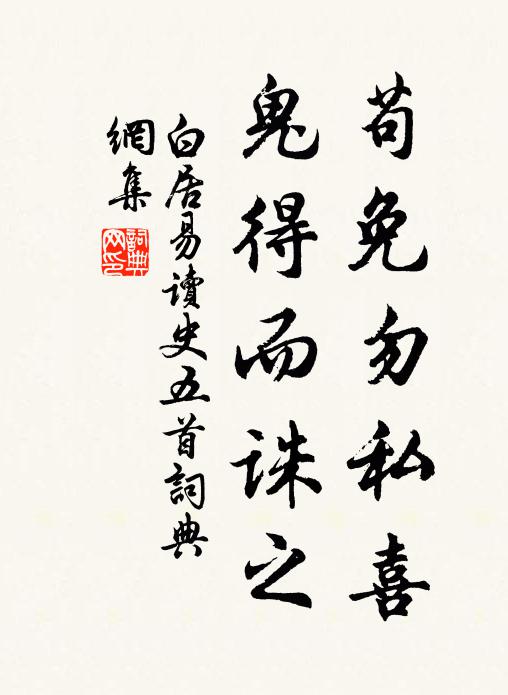 苟免勿私喜
鬼得而誅之
白居易讀史五首詞典
網集
詞典
网印